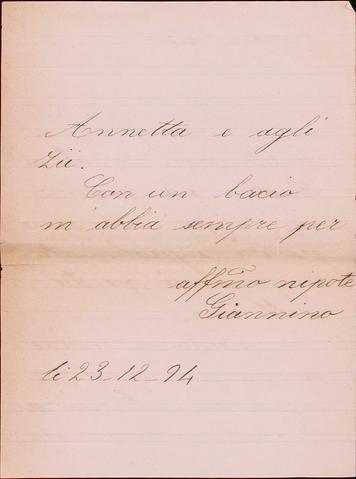 Annetta e agli
zii.
Con un bacio
m'abbia sempre per
affmo nipote
Giannino
li 23-12-94